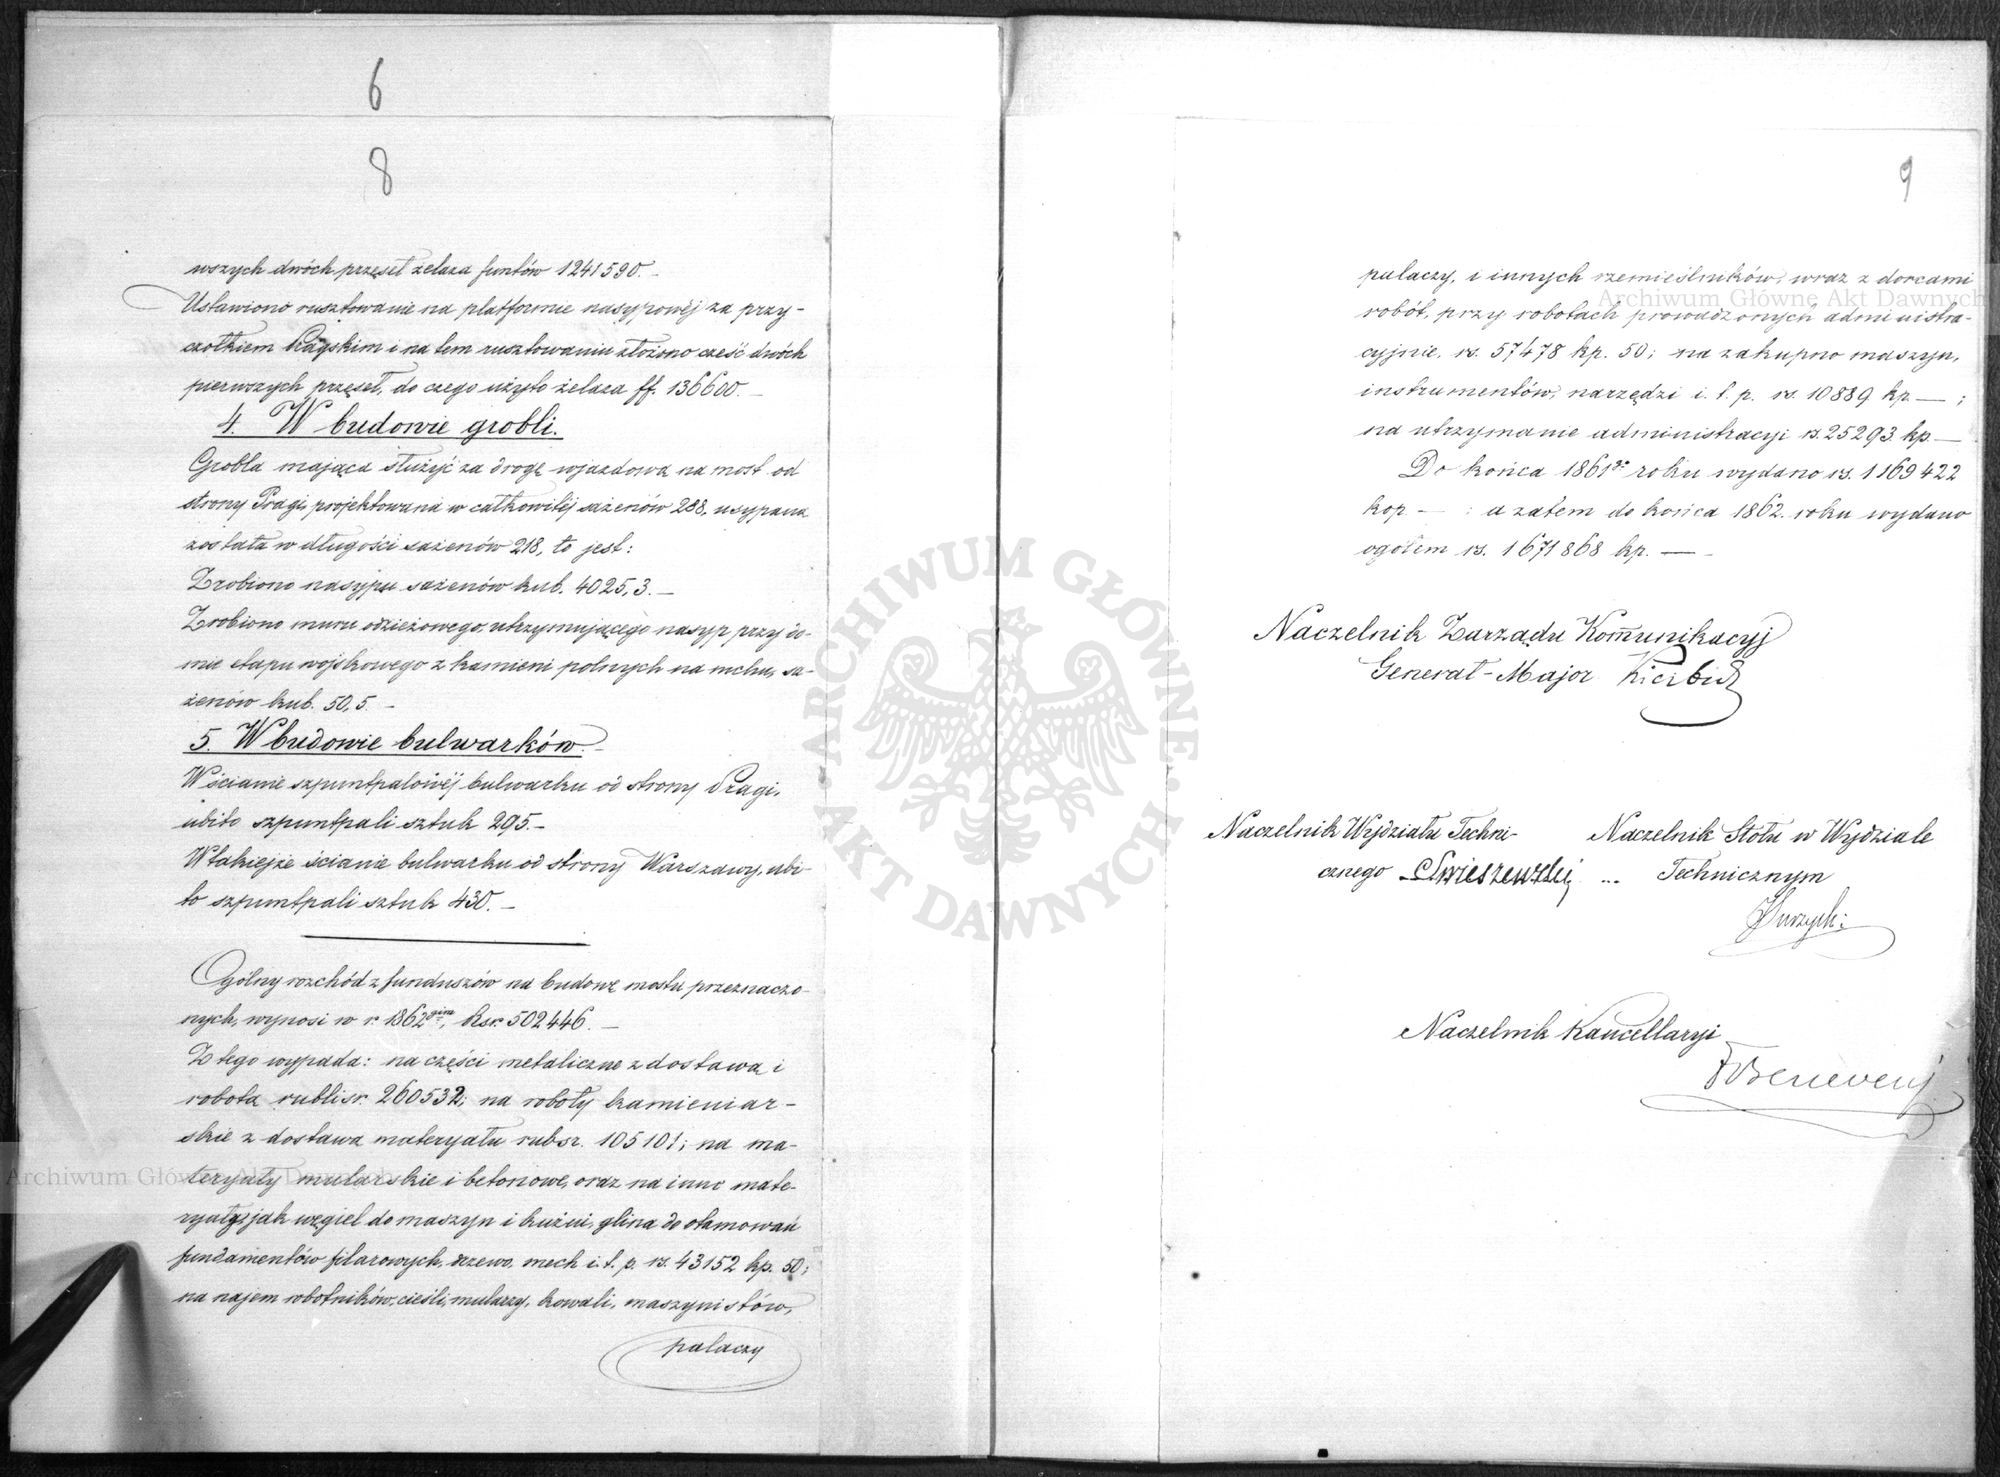 6
8
wszych dwóch przęseł żelaza funtów 1241590.–
Ustawiono rusztowanie na platformie nasypowéj za przy-
czółkiem i na tem rusztowaniu złożono cześć dwóch
pierwszych przęseł, do czego użyto żelaza ff. 136600.–
4. W budowie grobli.
Grobla mająca służyć za drogę wjazdowa na most od
strony Pragi, projektowana w całkowitéj sażenów 288, usypana
została w długości sażenów 218, to jest:
Zrobiono nasypu sażenów kub. 4025,3.–
Zrobiono muru odzieżowego, utrzymującego nasyp przy do-
mie etapu wojskowego z kamieni polnych na mchu, sa-
żenów kub. 50,5 –
5. W budowie bulwarków.–
W ścianie szpuntpalowéj bulwarku od strony Pragi,
ubito szpuntpali sztuk 295.–
W takiejże ścianie bulwarku od strony Warszawy, ubi-
to szpuntpali sztuk 430.–
Ogólny rozchód z funduszów na budowę mostu przeznaczo-
nych, wynosi w r. 1862gim, Rsr. 502446.–
Z tego wypada: na części metaliczne z dostawą i
robotą rublisr. 260532; na roboty kamieniar-
skie z dostawą materyału rubsr. 105101; na ma-
teryały mularskie i betonowe, oraz na inne mate-
ryały, jak węgiel do maszyn i kuźni, glina do otamowań
fundamentów filarowych, drzewo, mech i. t. p. rs. 43152 kp. 50;
na najem robotników, cieśli, mularzy, kowali, maszynistów,
palaczy
9
palaczy, i innych rzemieślników, wraz z dozcami
robót, przy robotach prowadzonych administra-
cyjnie, rs. 57478 kp. 50; na zakupno maszyn,
instrumentów, narzędzi i. t. p. rs. 10889 kp. — ;
na utrzymanie administracyi rs. 25293. kp. —
Do końca 1861go roku wydano rs. 1169422
kop — : a zatem do końca 1862. roku wydano
ogółem rs. 1671868 kp. — –
Naczelnik Zarządu Kommunikacyj
Generał-Major Kierbiedź
Naczelnik Wydziału Techni-
cznego
Naczelnik Stołu w Wydziale
Technicznym
Naczelnik Kancellaryi
Archiwum Główne Akt Dawnych
Archiwum Główne Akt Dawnych
ARCHIWUM GŁÓWNE AKT DAWNYCH